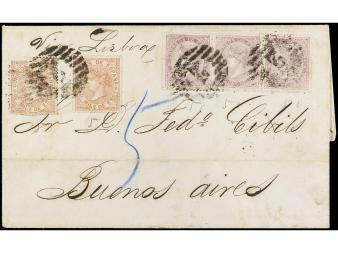 Via Lisboa
Sr. D. Fed.º Cibils
5
Buenos aires